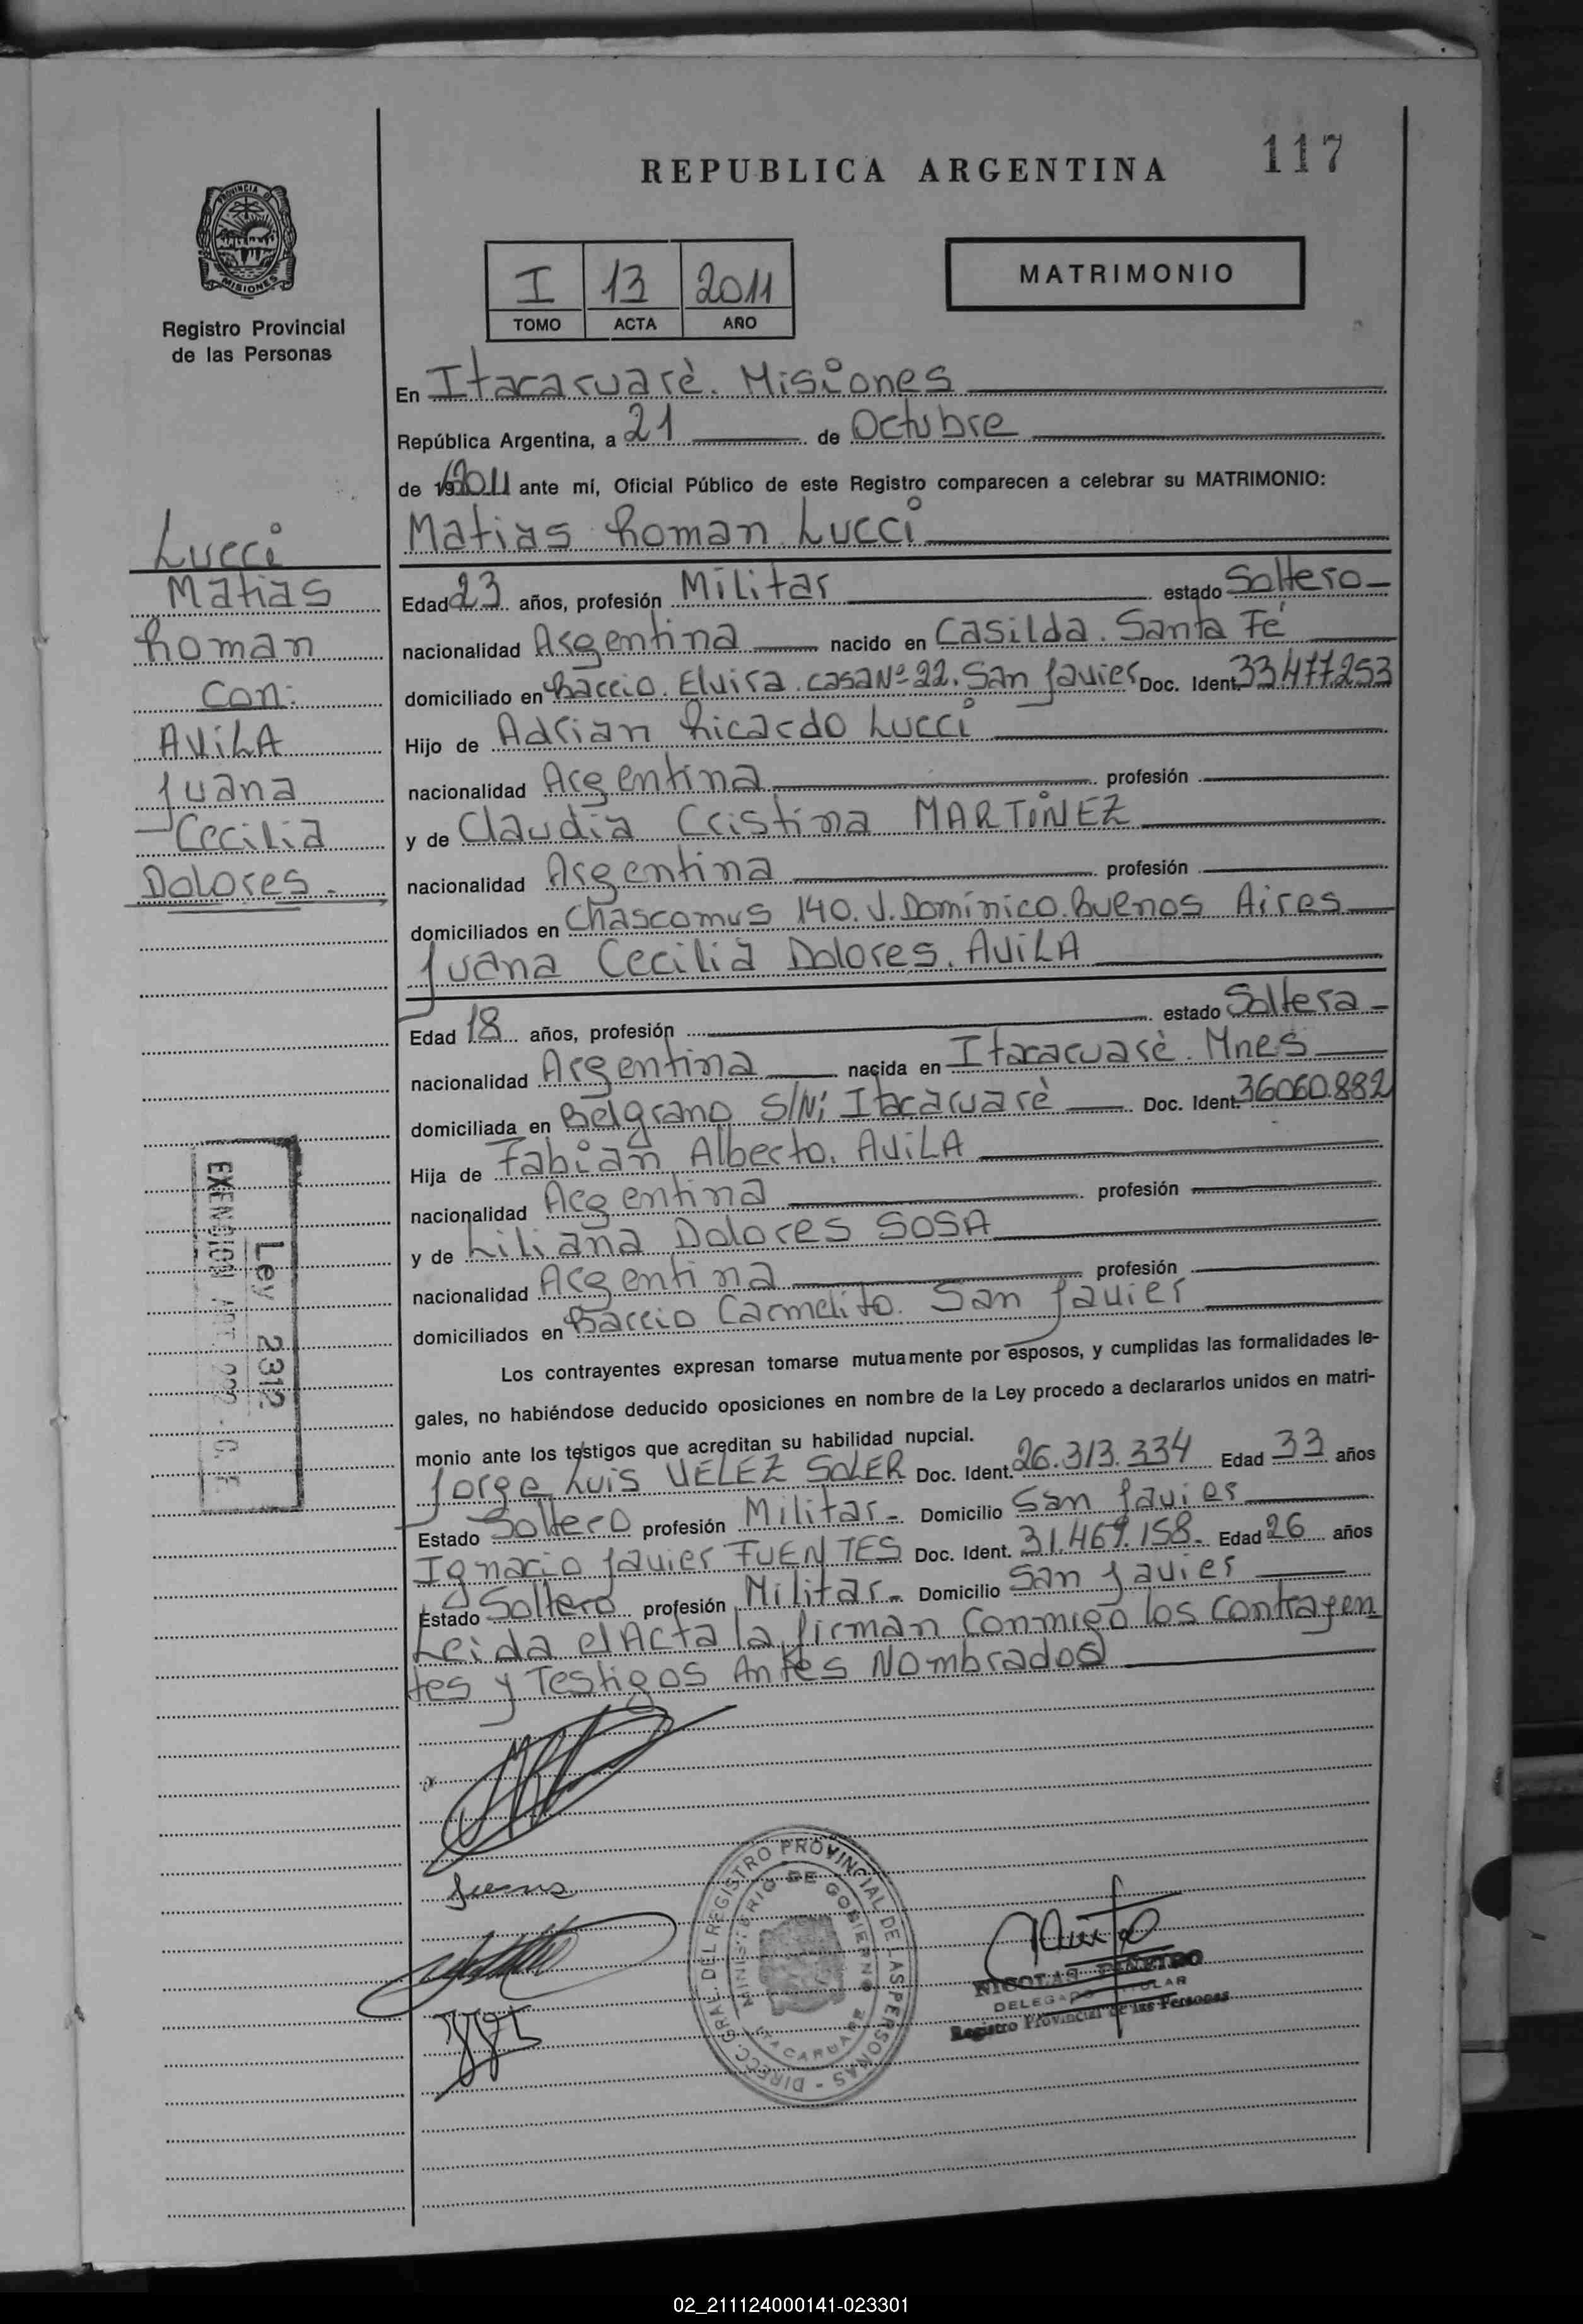 117
REPUBLICA ARGENTINA
PROVINCIA DE
MISIONES
Registro Provincial
de las Personas
I 13 2011
TOMO ACTA AÑO
MATRIMONIO
En Itacaruarè. Misiones
República Argentina, a 21 de Octubre
de 19 2011 ante mí, Oficial Público de este Registro comparecen a celebrar su MATRIMONIO:
Matias Roman Lucci
Lucci
Matias
Roman
Con:
AViLA
Juana
Cecilia
Dolores.-
Edad 23 años, profesión Militar estado Soltero-
nacionalidad Argentina nacido en Casilda. Santa Fé
domiciliado en Barrio. Elvira. casa Nº 22. San Javier Doc. Ident. 33.477.253
Hijo de Adrian Ricardo Lucci
nacionalidad Argentina profesión
y de Claudia Cristina MARTiNEZ
nacionalidad Argentina profesión
domiciliados en Chascomus 140. V. Domínico. Buenos Aires
Juana Cecilia Dolores. AViLA
Edad 18 años, profesión estado Soltera-
nacionalidad Argentina nacida en Itacaruarè. Mnes
domiciliada en Belgrano S/Nº Itacaruarè Doc. Ident. 36060.882
Hija de Fabian Alberto. AViLA
nacionalidad Argentina profesión
y de Liliana Dolores SOSA
nacionalidad Argentina profesión
domiciliados en Barrio Carmelito. San Javier
Los contrayentes expresan tomarse mutuamente por esposos, y cumplidas las formalidades le-
gales, no habiéndose deducido oposiciones en nombre de la Ley procedo a declararlos unidos en matri-
monio ante los testigos que acreditan su habilidad nupcial.
Jorge Luis VELEZ SOLER Doc. Ident. 26.313.334 Edad 33 años
Estado Soltero profesión Militar- Domicilio San Javier
Ignacio Javier FUENTES Doc. Ident. 31.469.158. Edad 26 años
Estado Soltero profesión Militar- Domicilio San Javier
Leida el Acta la firman conmigo los contrayen
tes y Testigos Antes Nombrados
Ley 2312
EXENCION ART.
Juana
DIRECC. GRAL. DEL REGISTRO PROVINCIAL DE LAS PERSONAS -
MINISTERIO DE GOBIERNO
ITACARUARE
NICOLAS
DELEGADO TITULAR
Registro Provincial de las Personas
02_211124000141-023301